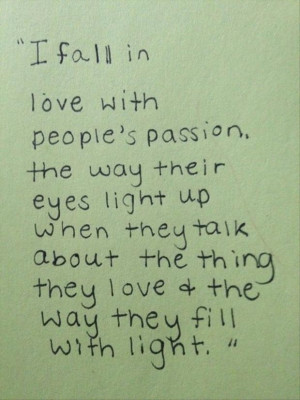 "I fall in
love with
people's passion.
the way their
eyes light up
when they talk
about the thing
they love & the
way they fill
with light."